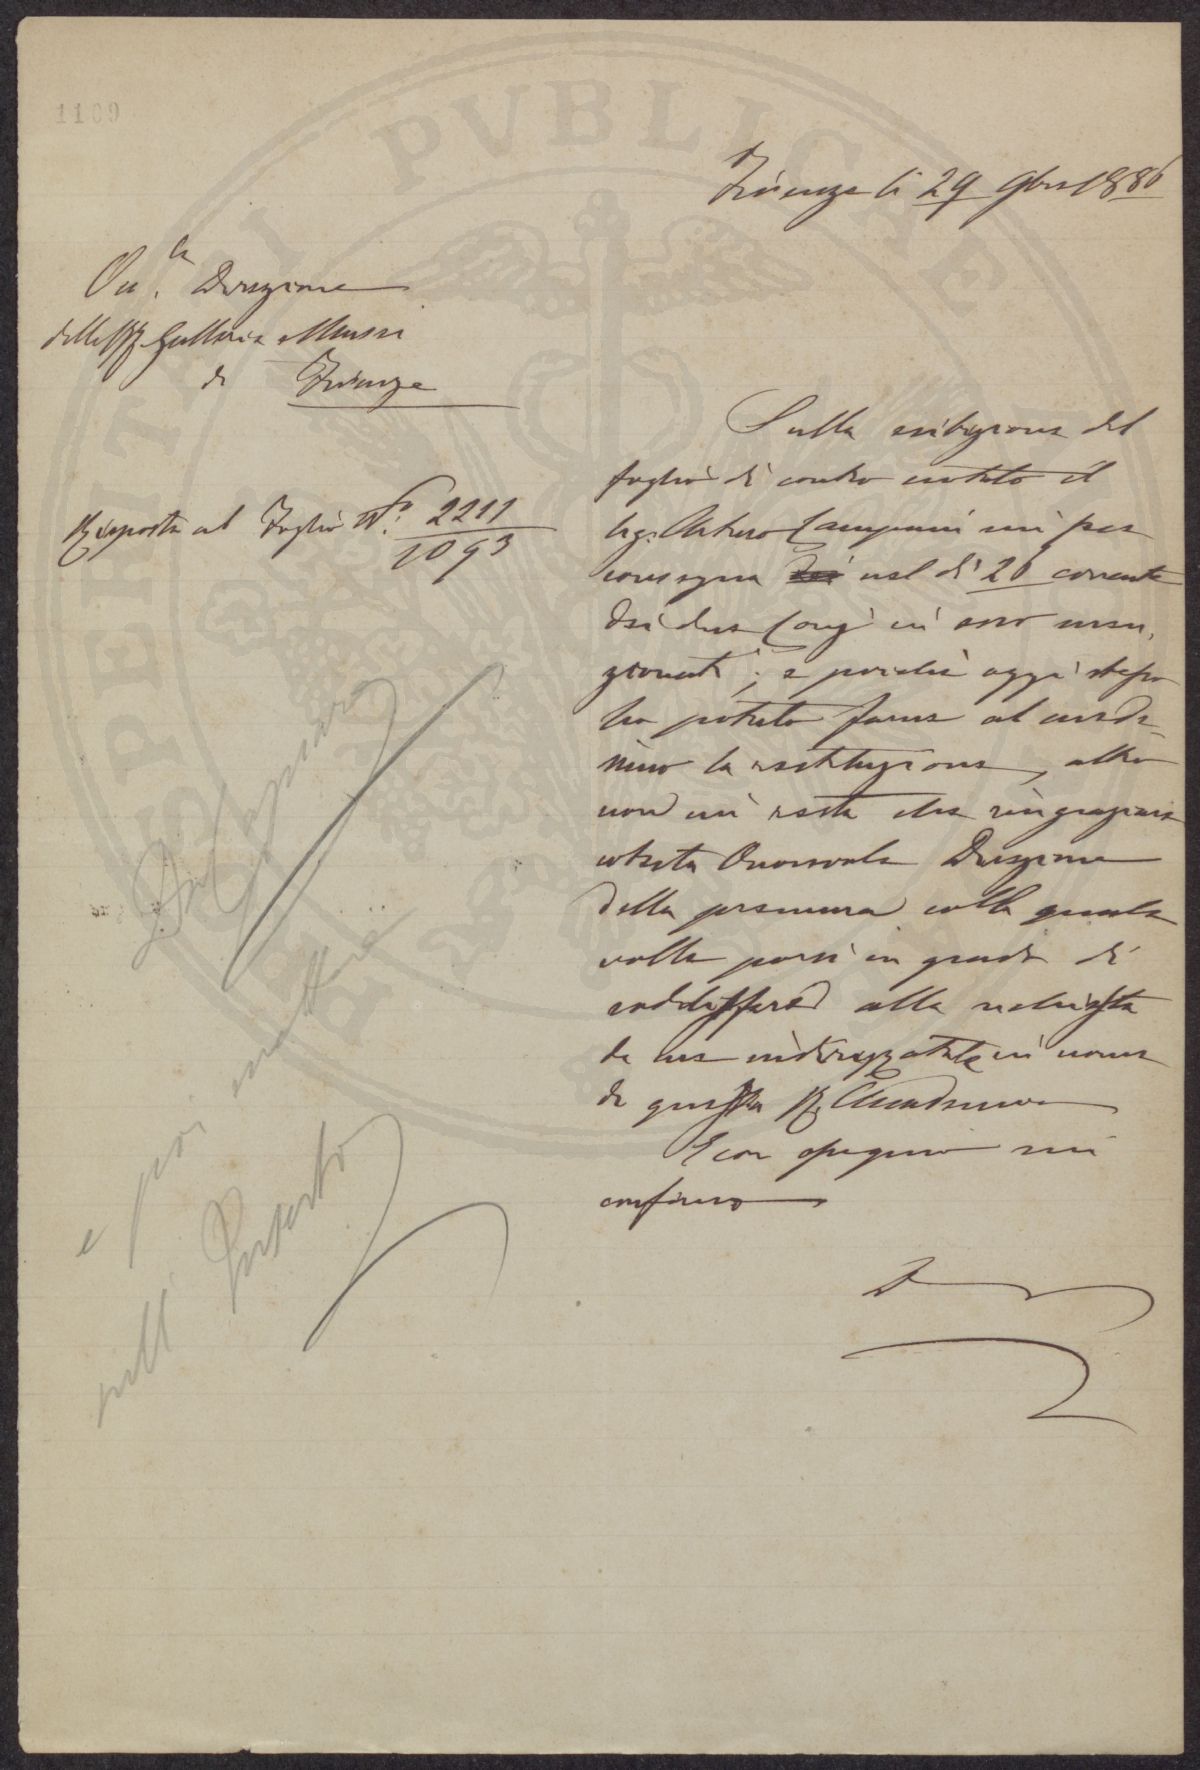 1109
Firenze li 29 9bre 1886
On.la Direzione
delle RR. Gallerie e Musei
di Firenze
Risposta al Foglio N.o 2211
1093
Sulla esibizione del
foglio di contro notato il
Sig. Arturo Campani mi fece
consegna nel dì 26 corrente
dei due in esso men-
zionati; e poichè oggi stesso
ho potuto farne al mede-
simo la restituzione, altro
non mi resta che ringraziare
cotesta Onorevole Direzione
della premura colla quale
volle porsi in grado di
soddisfare alla richiesta
da me indirizzatale in nome
di questa R. Accademia
E con ossequio mi
confermo
e poi
nell'